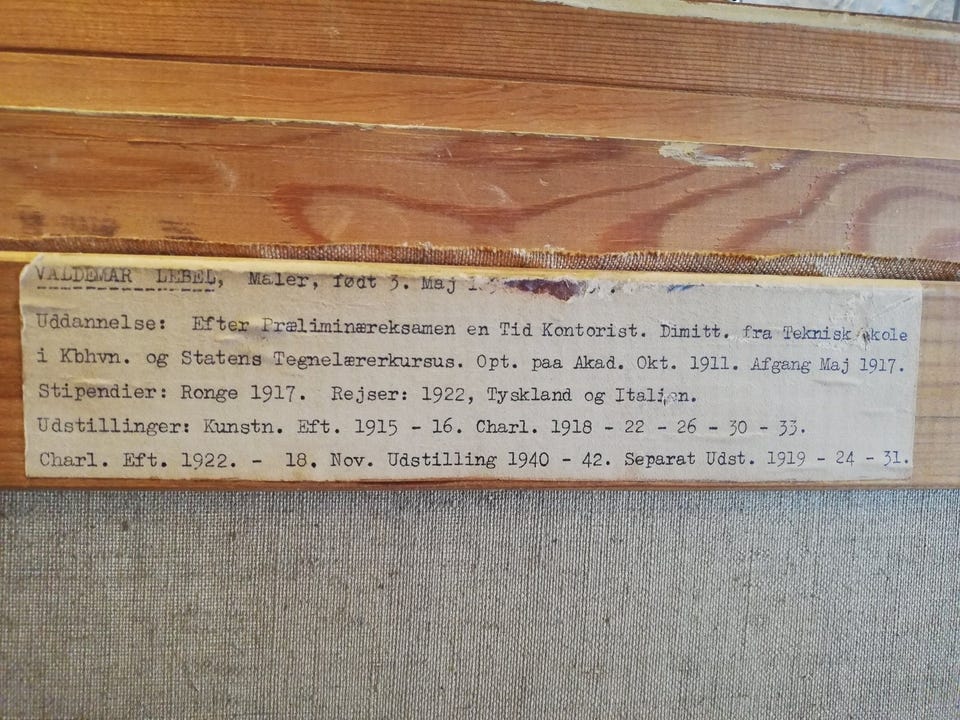 VALDEMAR LEBEL, Maler, født 3. Maj
Uddannelse: Efter Præliminæreksamen en Tid Kontorist. Dimitt. fra Teknisk kole
i Kbhvn. og Statens Tegnelærerkursus. Opt. paa Akad. Okt. 1911. Afgang Maj 1917.
Stipendier: Ronge 1917. Rejser: 1922, Tyskland og Italien.
Udstillinger: Kunstn. Eft. 1915 - 16. Charl. 1918 - 22 - 26 - 30 - 33.
Charl. Eft. 1922. - 18. Nov. Udstilling 1940 - 42. Separat Udst. 1919 - 24 - 31.